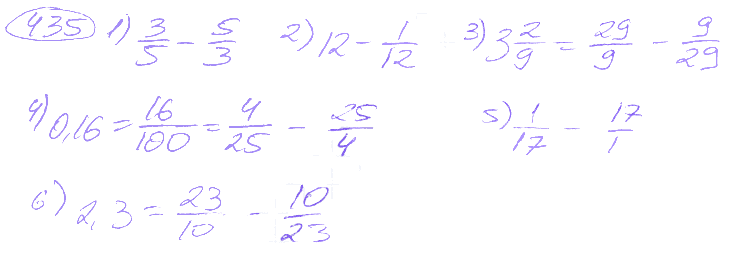 435 1) 3/5 - 5/3 2) 12 - 1/12 3) 3 2/9 = 29/9 - 9/29
4) 0,16 = 16/100 = 4/25 - 25/4 5) 1/17 - 17/1
6) 2,3 = 23/10 - 10/23